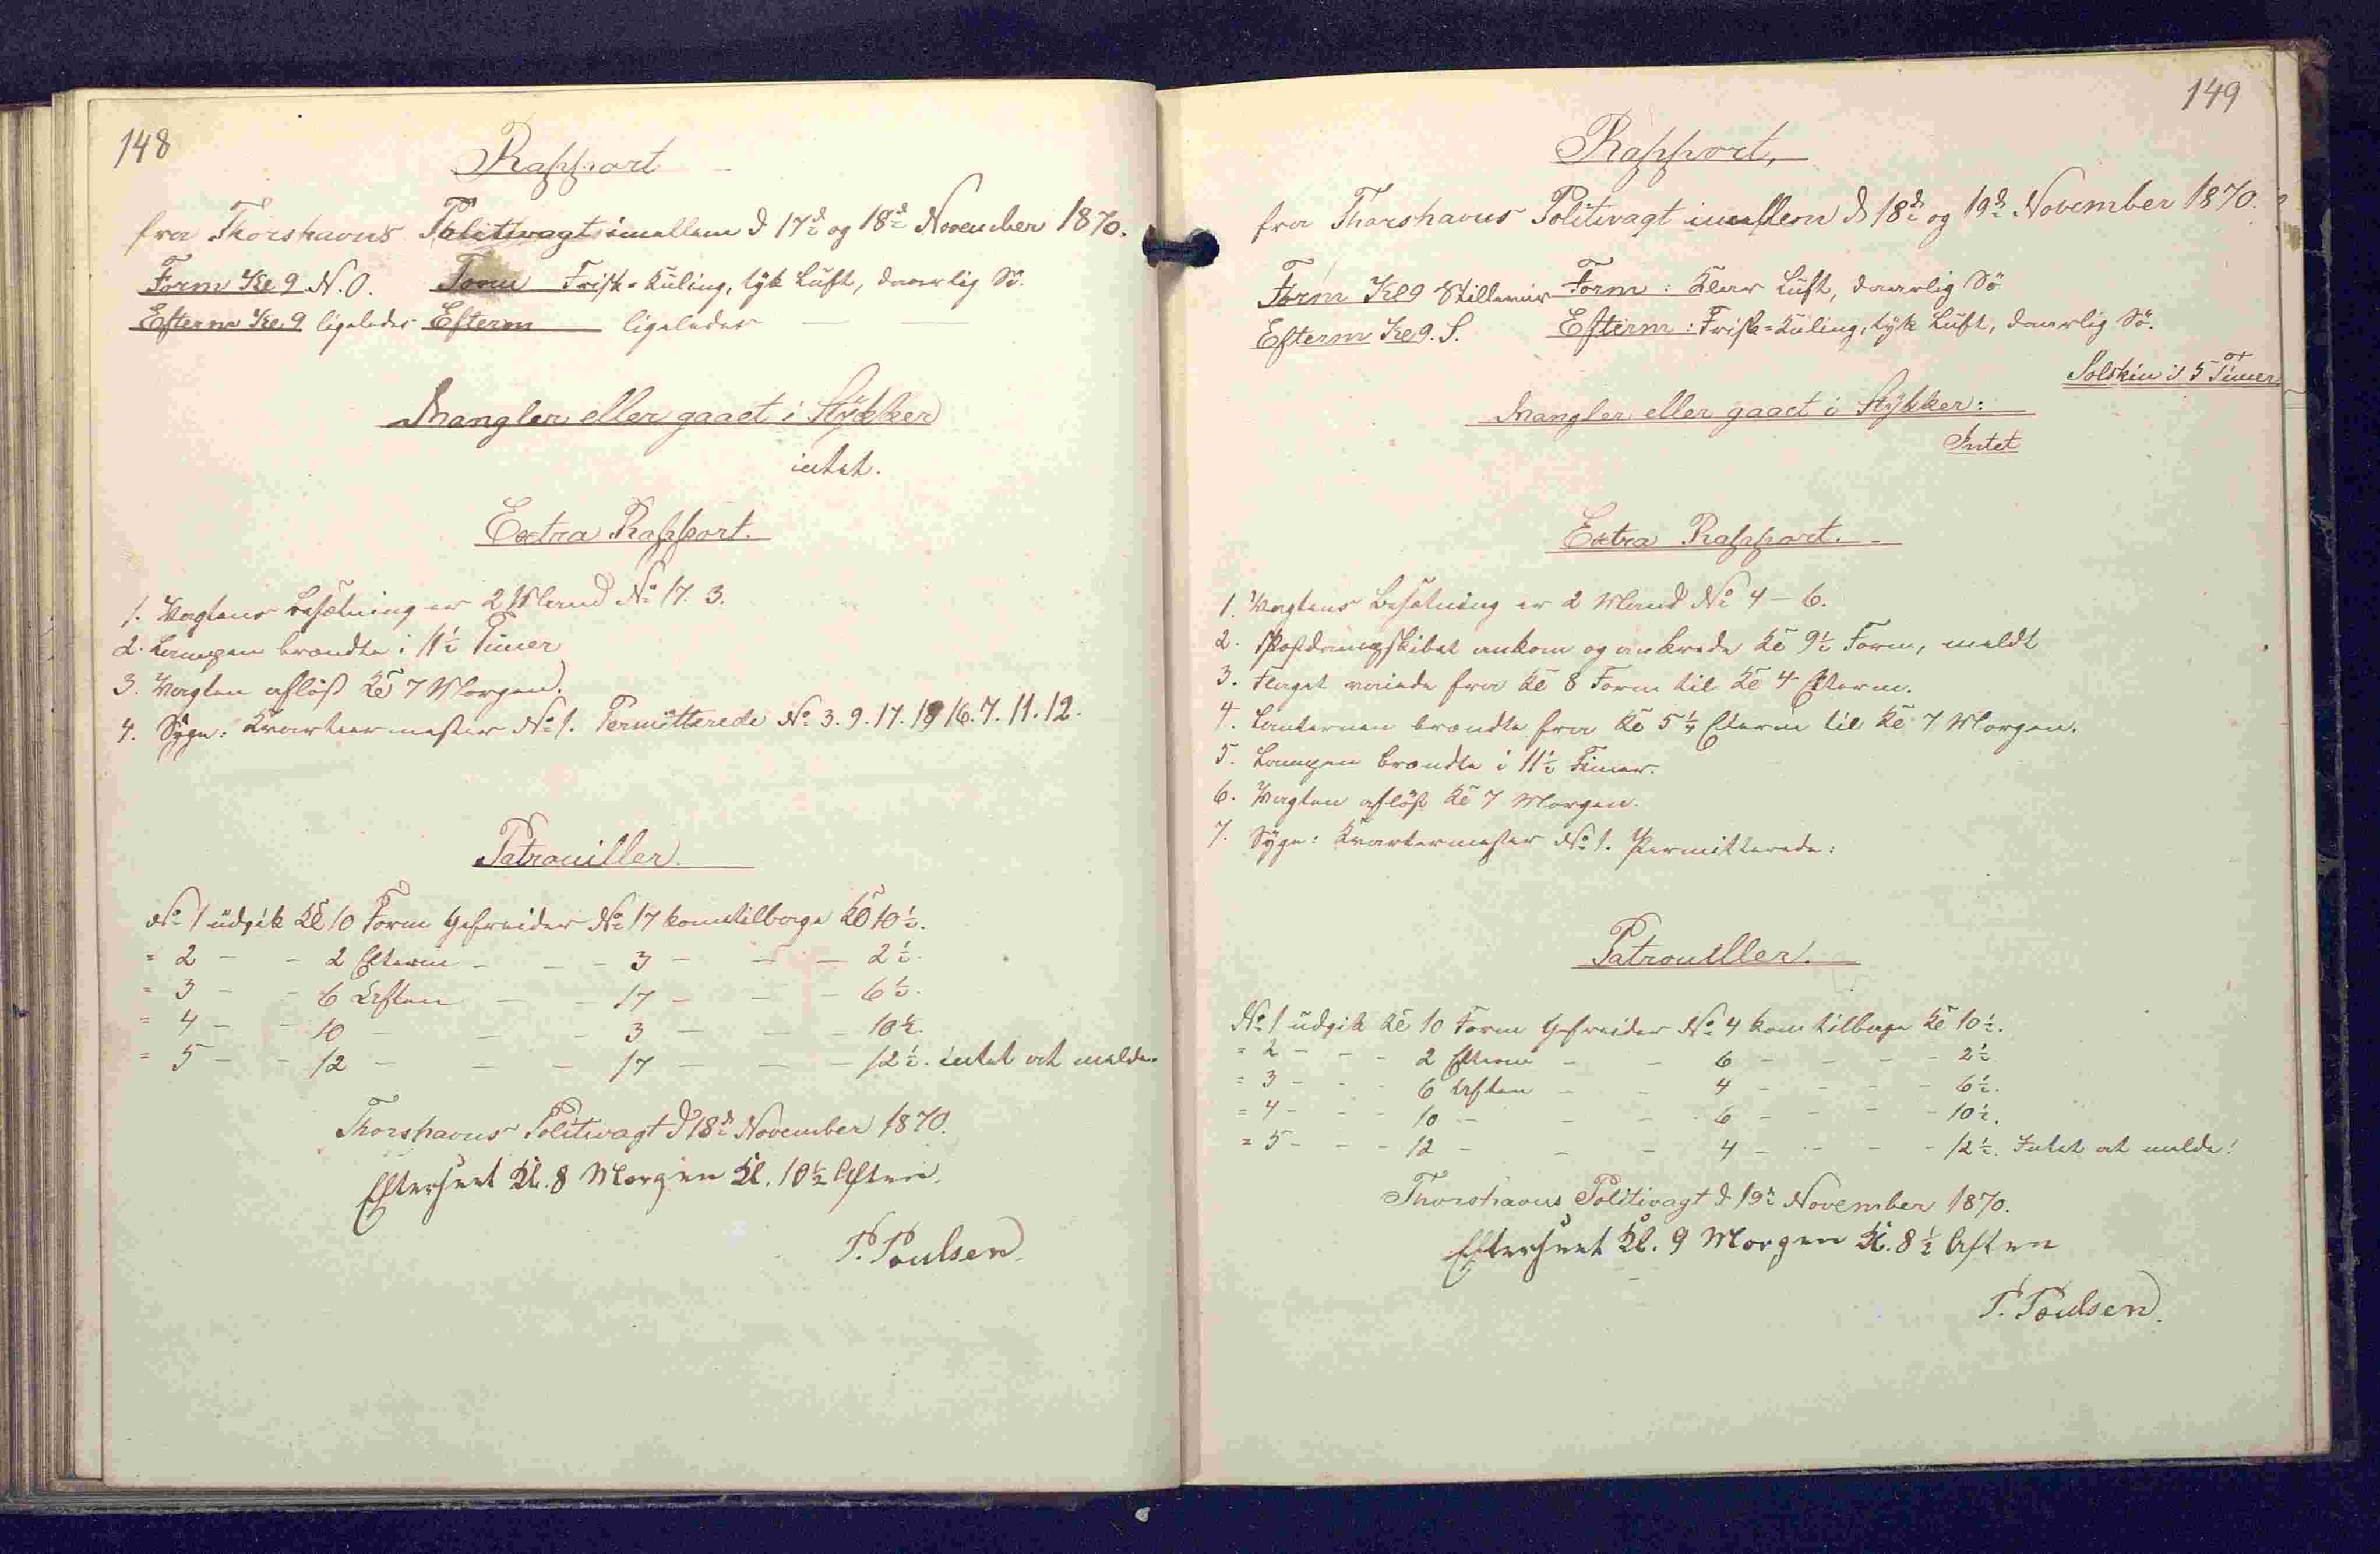 148
Rapport
fra Thorshavns Politivagt imellem d 17d og 18d November 1870.
Form Kl 9 N.O. Form Frisk-Kuling, tyk Luft, daarlig Sö.
Efterm Kl. 9 ligeledes Efterm ligeledes
Mangler eller gaaet i Stykker
intet.
Extra Rapport.
1. Vagtens Besætning er 2 Mand No 17. 3.
2. Lampen brændte i 11½ Timer
3. Vagten aflöst Kl 7 Morgen.
4. Syge: Kvarteermester No 1. Permitterede No 3. 9. 17. 16. 7. 11. 12.
Patrouiller.
No 1 udgik Kl 10 Form Gefreider No 17 kom tilbage Kl 10½.
= 2 - - 2 Efterm - - - 3 - - - 2½.
= 3 - - 6 Aften - - 17 - - - 6½.
= 4 - - 10 - - - 3 - - - 10½.
= 5 - - 12 - - - 17 - - - 12½. intet at melde.
Thorshavns Politivagt d 18d November 1870.
Efterseet Kl. 8 Morgen Kl. 10½ Aften.
P. Poulsen.
149
Rapport,
fra Thorshavns Politivagt imellem d 18d og 19d November 1870.
Form Kl 9 Stille Form: Klar Luft, daarlig Sö
Efterm Kl 9. S. Efterm: Frisk-Kuling, tyk Luft, daarlig Sö.
Solskin i 5 Timer
Mangler eller gaaet i Stykker:
Intet
Extra Rapport. -
1. Vagtens Besætning er 2 Mand No 4 - 6.
2. Postdampskibet ankom og ankrede Kl 9½ Form, meldt
3. Flaget vaiede fra Kl 8 Form til Kl 4 Efterm.
4. Lanternen brændte fra Kl 5¼ Efterm til Kl 7 Morgen.
5. Lampen brændte i 11½ Timer.
6. Vagten aflöst Kl 7 Morgen.
7. Syge: Kvartermester No 1. Permitterede:
Patrouiller.
No 1 udgik Kl 10 Form Gefreider No 4 kom tilbage Kl 10½.
= 2 - - - 2 Efterm - - 6 - - - - 2½.
= 3 - - - 6 Aften - - 4 - - - - 6½.
= 4 - - - 10 - - - 6 - - - - 10½.
= 5 - - - 12 - - - 4 - - - - 12½. Intet at melde!
Thorshavns Politivagt d 19d November 1870.
Efterseet Kl. 9 Morgen Kl. 8½ Aften
P. Poulsen.